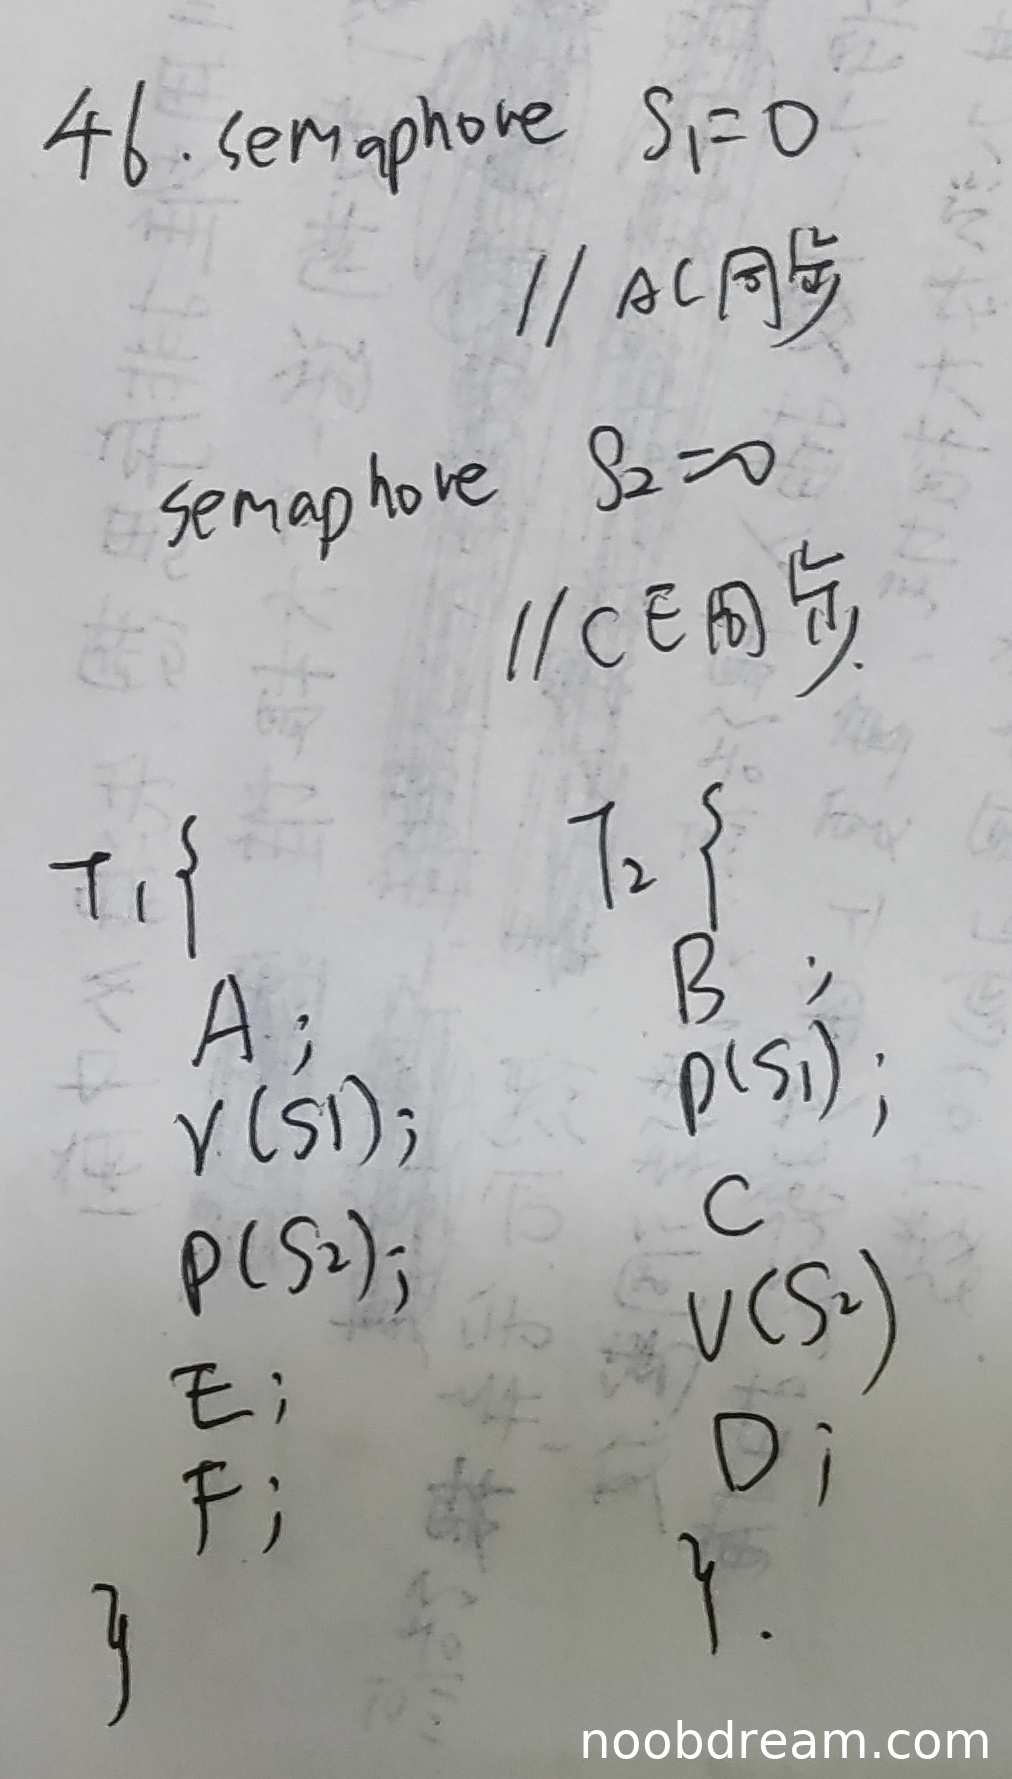 46. semaphore S1=0
// AC同步
semaphore S2=0
// CE同步.
T1{
A;
V(S1);
P(S2);
E;
F;
}
T2{
B;
P(S1);
C
V(S2)
D;
}.
noobdream.com